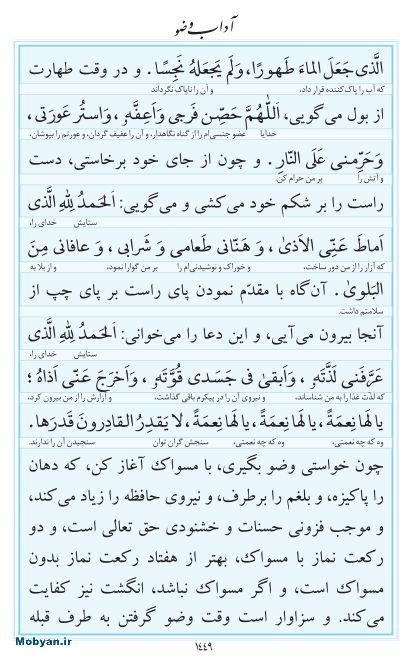 آداب وضو
الَّذي جَعَلَ الماءَ طَهورًا، وَلَم يَجعَلهُ نَجِسًا. و در وقت طهارت
كه آب را پاک‌کننده قرار داد، و آن را ناپاک نگرداند
از بول می‌گویی، اَللّٰهُمَّ حَصِّن فَرجي وَاَعِفَّهُ، وَاستُر عَورَتي،
خدایا عضو جنسی‌ام را از گناه نگاهدار، و آن را عفیف گردان، و عورتم را بپوشان،
وَحَرِّمني عَلَى النّارِ. و چون از جای خود برخاستی، دست
و آتش را بر من حرام کن.
راست را بر شکم خود می‌کشی و می‌گویی: اَلحَمدُ لِلّٰهِ الَّذي
ستایش خدای را،
اَماطَ عَنِّي الاَذىٰ، وَ هَنَّاني طَعامي وَ شَرابي، وَ عافاني مِنَ
که آزار را از من دور ساخت، و خوراک و نوشیدنی‌ام را بر من گوارا نمود، و از بلا به
البَلوىٰ. آن‌گاه با مقدّم نمودن پای راست بر پای چپ از
سلامتم داشت.
آنجا بیرون می‌آیی، و این دعا را می‌خوانی: اَلحَمدُ لِلّٰهِ الَّذي
ستایش خدای را،
عَرَّفَني لَذَّتَهُ، وَاَبقىٰ في جَسَدي قُوَّتَهُ، وَاَخرَجَ عَنّي اَذاهُ؛
که لذّت غذا را به من شناساند، و نیروی آن را در پیکرم باقی گذاشت، و آزارش را از من بیرون کرد،
يا لَها نِعمَةً، يا لَها نِعمَةً، يا لَها نِعمَةً، لا يَقدِرُ القادِرونَ قَدرَها.
وه که چه نعمتی، وه که چه نعمتی، سنجش گران توان سنجیدن آن را ندارند.
چون خواستی وضو بگیری، با مسواک آغاز کن، که دهان
را پاکیزه، و بلغم را برطرف، و نیروی حافظه را زیاد می‌کند،
و موجب فزونی حسنات و خشنودی حق تعالی است، و دو
رکعت نماز با مسواک، بهتر از هفتاد رکعت نماز بدون
مسواک است، و اگر مسواک نباشد، انگشت نیز کفایت
می‌کند. و سزاوار است وقت وضو گرفتن به طرف قبله
Mobyan.ir
۱۴۴۹